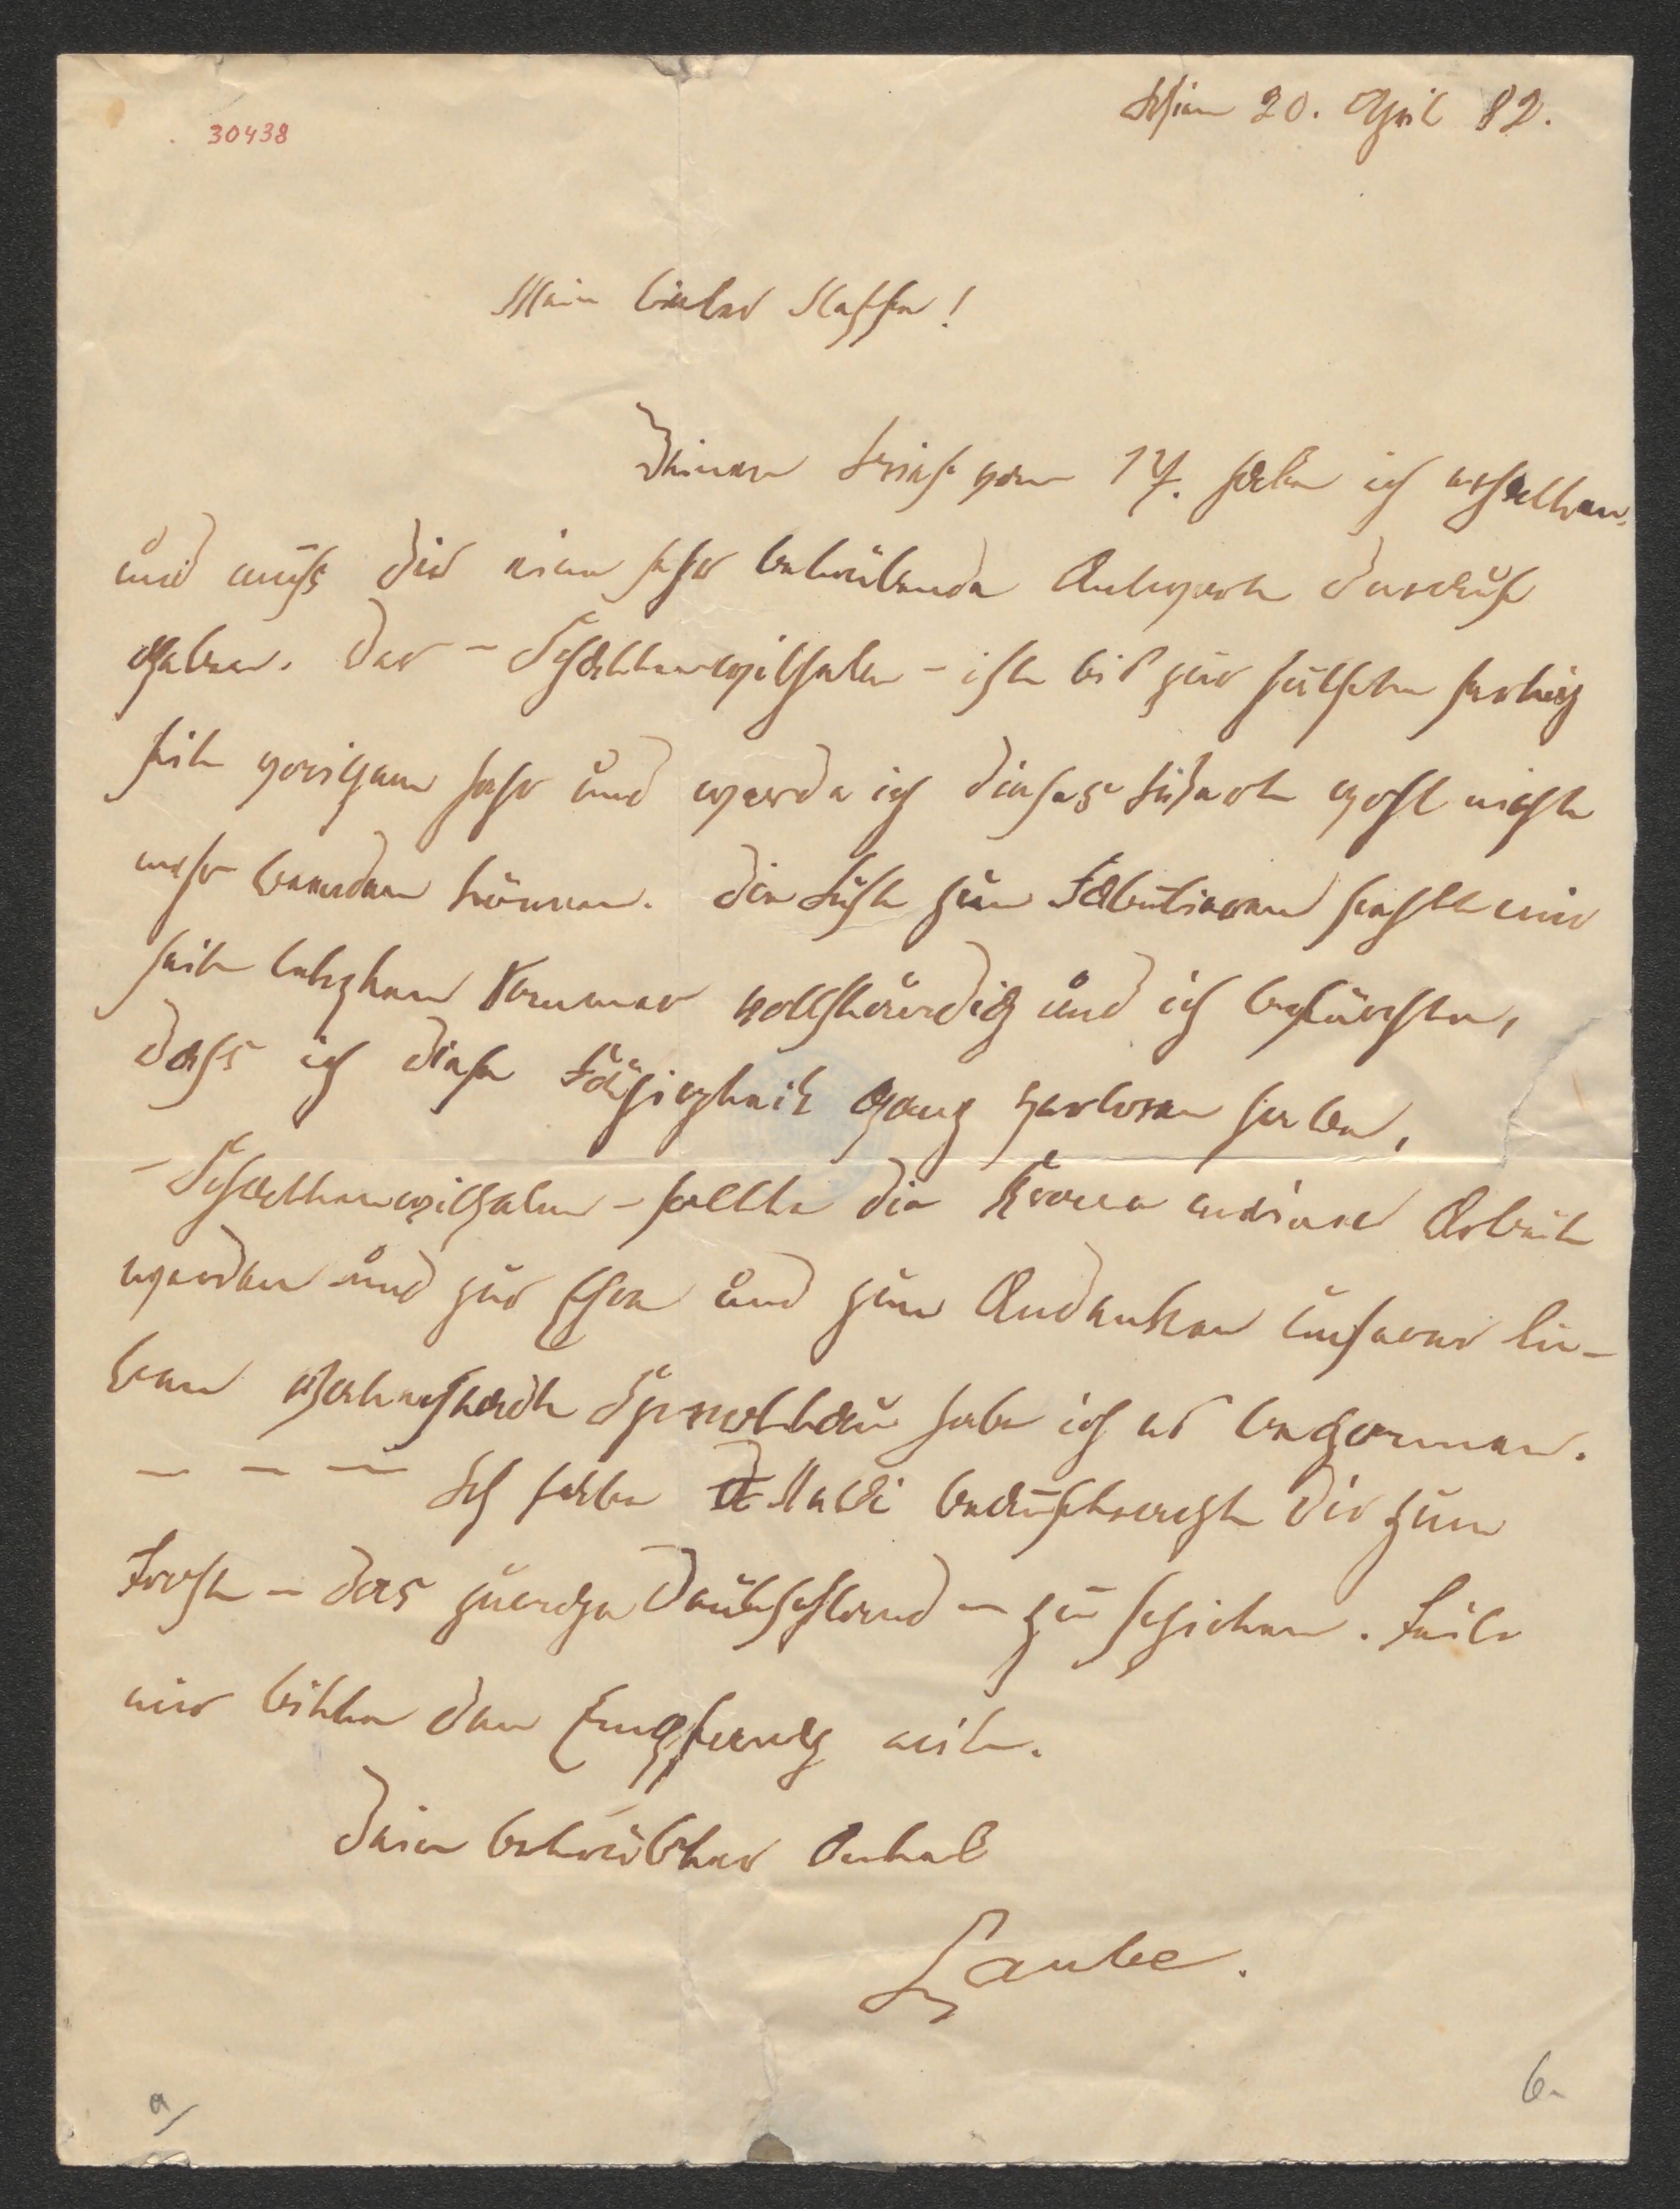 30438
Wien 20. April 82.
Mein lieber Neffe!
Deinen Brief vom 17. habe ich erhalten.
und muß Dir eine sehr betrübende Antwort darauf
geben. Der - Schattenwilhelm - ist bis zur Hälfte fertig
seit vorigem Jahr und werde ich dieses wohl nicht
mehr beenden können. Die Lust zum Fabulieren fehlt mir
seit letztem Sommer vollständig und ich befürchte,
daß ich diese Fähigkeit ganz verloren habe,
- Schattenwilhelm - sollte die Krone meiner Arbeit
werden und zur Ehre und zum Andenken unserer lie-
ben Vaterstadt Sprottau habe ich es begonnen.
- - - Ich habe beauftragt Dir zum
Trost - das junge Deutschland - zu schicken. Teile
mir bitte den Empfang mit.
Dein betrübter Onkel
Laube.
a/
6-